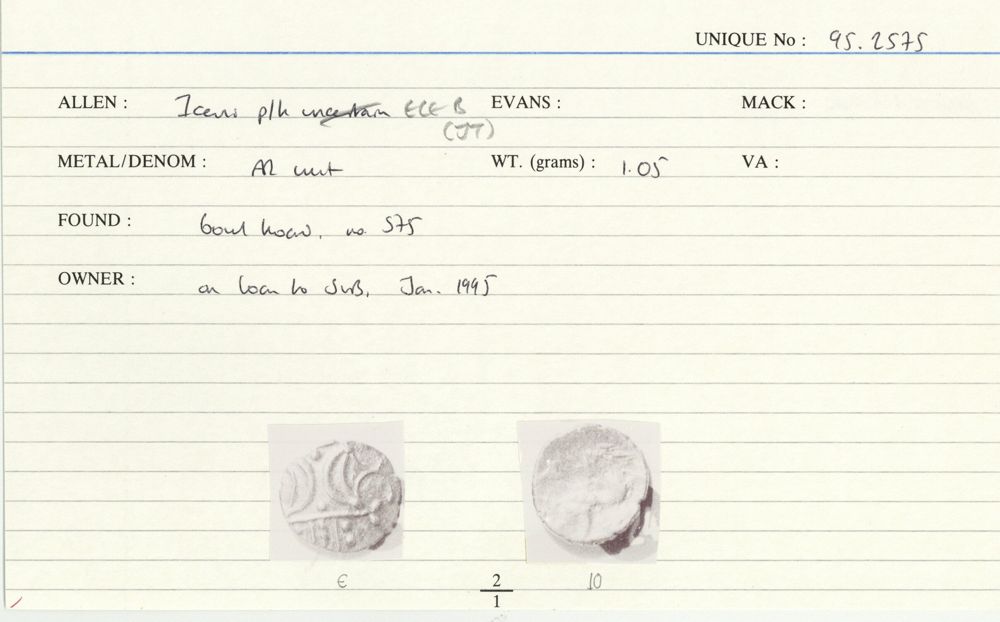 UNIQUE No : 95.2575
ALLEN : Iceni p/h uncertain ECE B EVANS : MACK :
(JT)
METAL/DENOM : AR unit WT. (grams) : 1.05 VA :
FOUND : bowl hoard, no. 575
OWNER : on loan to SVB, Jan. 1995
€ 2 10
1